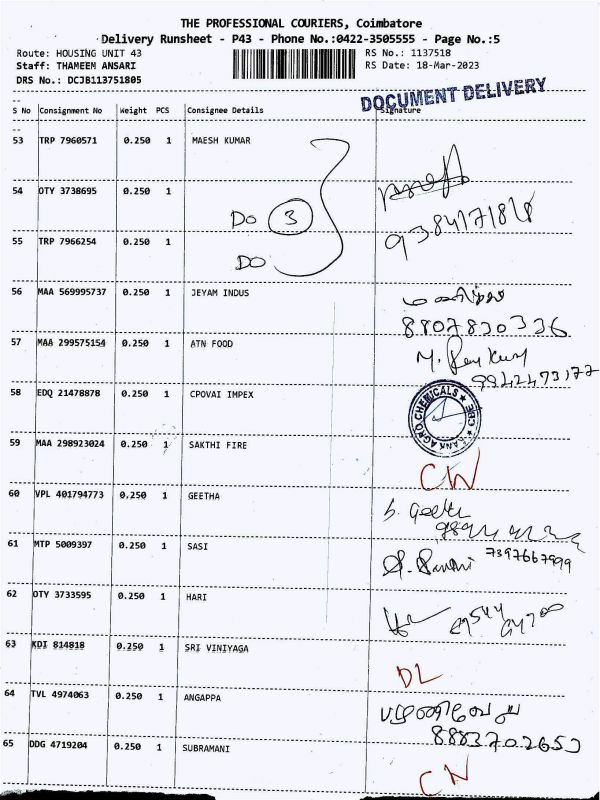 THE PROFESSIONAL COURIERS, Coimbatore
Delivery Runsheet - P43 - Phone No.:0422-3505555 - Page No.:5
Route: HOUSING UNIT 43 RS No.: 1137518
Staff: THAMEEM ANSARI RS Date: 18-Mar-2023
DRS No.: DCJB113751805
DOCUMENT DELIVERY
S No Consignment No Weight PCS Consignee Details Signature
53 TRP 7960571 0.250 1 MAESH KUMAR
54 OTY 3738695 0.250 1
Do 3
55 TRP 7966254 0.250 1
Do
56 MAA 569995737 0.250 1 JEYAM INDUS
8807830336
57 MAA 299575154 0.250 1 ATN FOOD
58 EDQ 21478878 0.250 1 CPOVAI IMPEX
AGRO CHEMICALS ★ CBE ★
59 MAA 298923024 0.250 1 SAKTHI FIRE
CN
60 VPL 401794773 0.250 1 GEETHA
b. Geetha
61 MTP 5009397 0.250 1 SASI
7397667999
62 OTY 3733595 0.250 1 HARI
63 KDI 814818 0.250 1 SRI VINIYAGA
DL
64 TVL 4974063 0.250 1 ANGAPPA
8883702653
65 DDG 4719204 0.250 1 SUBRAMANI
CN